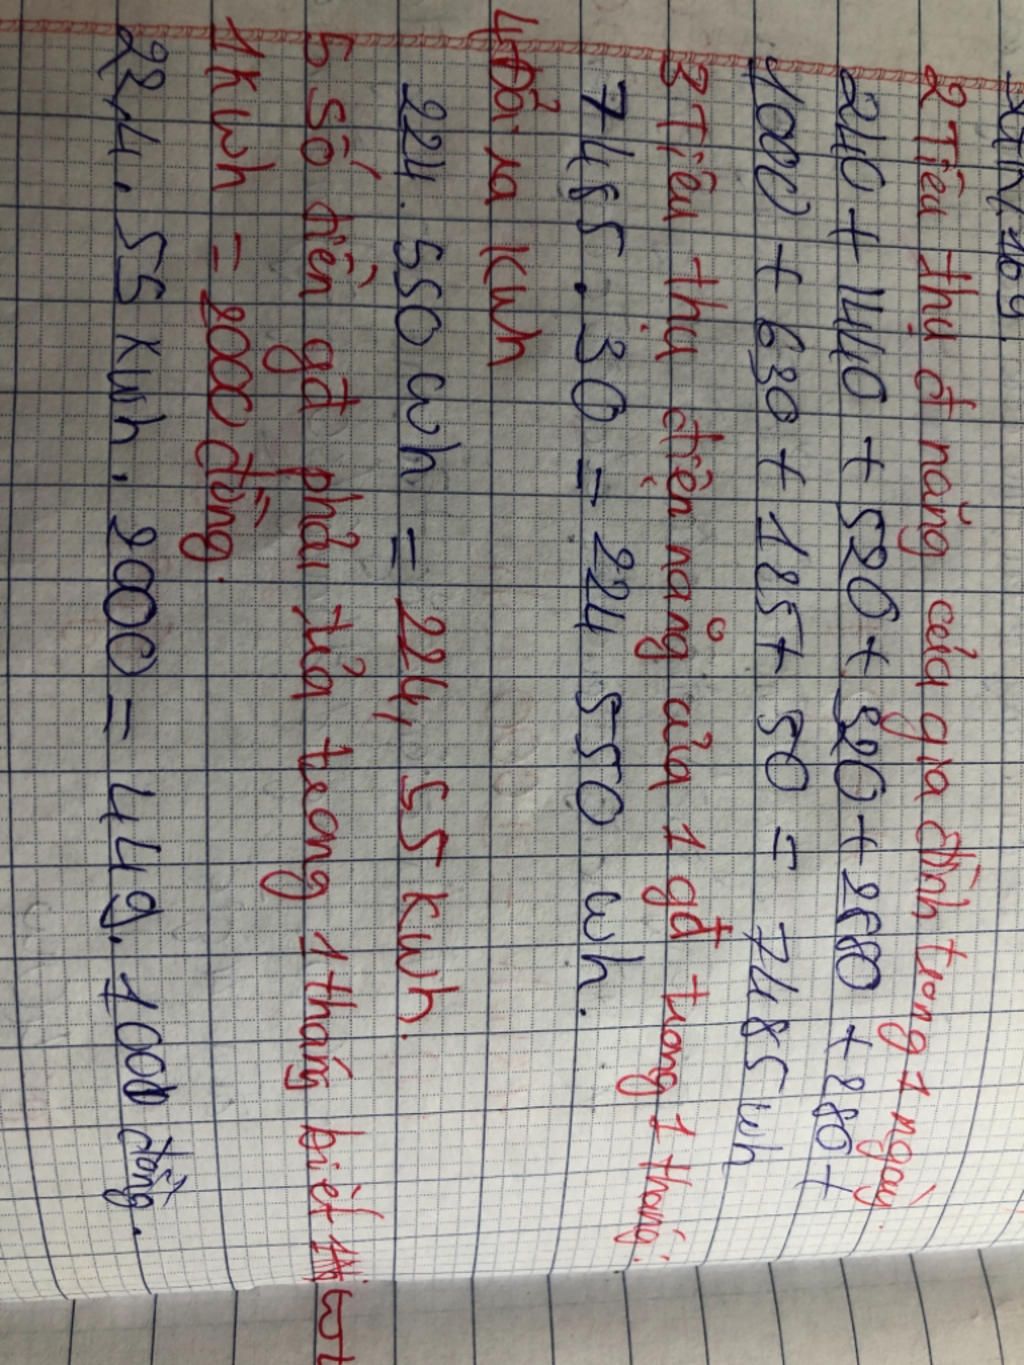 2 Tiêu thụ đ năng của gia đình trong 1 ngày.
240 + 1440 + 520 + 520 + 2680 + 280 +
1000 + 630 + 185 + 50 = 7485 wh
3 Tiêu thụ điện năng của 1 gđ trong 1 tháng.
7485 . 30 = 224 550 wh.
4 Đổi ra Kwh
224. 550 wh = 224, 55 Kwh.
5 số tiền gđ phải trả trong 1 tháng biết
1 Kwh = 2000 đồng.
224. 55 Kwh. 2000 = 449. 100 đồng.